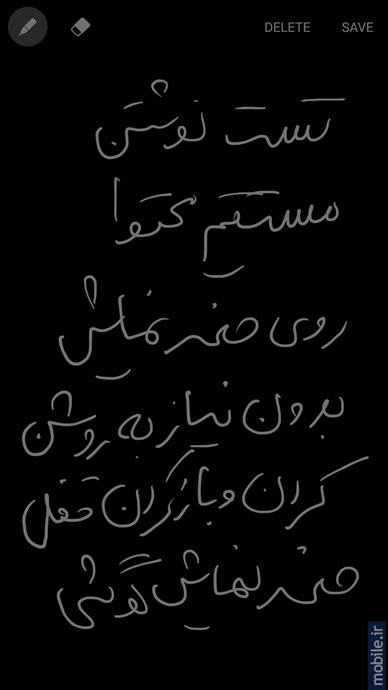 DELETE SAVE
تست نوشتن
مستقیم محتوا
روی صفحه نمایش
بدون نیاز به روشن
کردن و باز کردن قفل
صفحه نمایش گوشی
mobile.ir